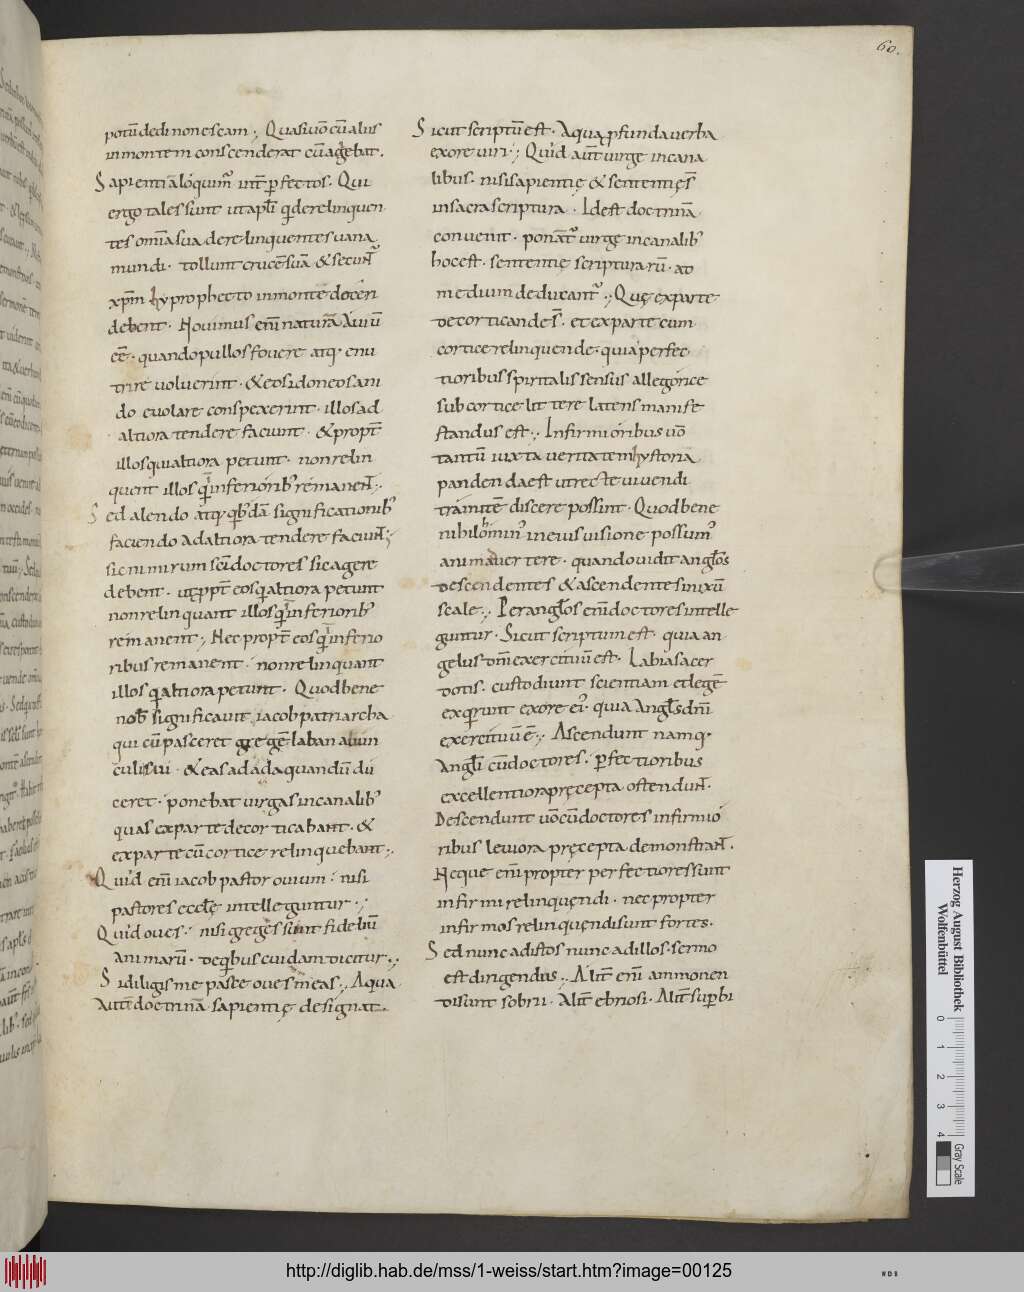 60.
potū dedi non escam ; Quasi uō cū aliis
in montem conscenderat cū agebat .
Sapientiā loquimur int̄ perfectos . Qui
ergo tales sunt ut apłi qui derelinquen
tes omīa sua derelinquentes uana
mundi . tollunt crucē suā & secunt̄
xpm̄ hy propheeto in monte doceri
debent . Nouimus enī naturā auiū
eē . quando pullos fouere atq; enu
trire uoluerint . & eos idoneos ani
do euolare conspexerint . illos ad
altiora tendere faciunt . & propt̄
illos qui altiora petunt . non relin
quent illos qui inferiorib; remanent̄ ;
Sed alendo atq; quibdā significationib;
faciendo ad altiora tendere faciunt̄ ;
sic nimirum scī doctores sic agere
debent . ut ppt̄ eos qui altiora petunt
non relinquant illos qui inferiorib;
remanent ; Nec propt̄ eos qui inferio
ribus remanent . non relinquant
illos qui altiora petunt . Quod bene
nob̄ significauit iacob patriarcha
qui cū pasceret gregē laban auun
culi sui . & eas ad adaquandū du
ceret . ponebat uirgas in canalib;
quas ex parte decorticabant . &
ex parte cū cortice relinquebant ;
Quid enī iacob pastor ouium . nisi
pastores eccłę intelleguntur ;
Quid oues . nisi greges sunt fideliū
animarū . de quibus cuidam dicitur ;
Si diligis me pasce oues meas ; Aqua
aut̄ doctrinā sapientię designat .
Sicut scriptū est . Aqua pfunda uerba
ex ore uiri ; Quid aut̄ uirge in cana
libus . nisi sapientię & sententięs̄
in sacra scriptura . Id est doctrinā
conuenit . ponant̄ uirge in canalib;
hoc est . sententię scripturarū . ad
medium deducant̄ ; Quę ex parte
decorticandes̄ . et ex parte cum
cortice relinquende . quia perfec
tioribus spiritalis sensus allegorice
sub cortice litterę latens manife
standus est ; Infirmioribus uō
tantū iuxta ueritatem hystoriā
pandenda est ut recte uiuendi
tramitē discere possint . Quod bene
nihilominus in eius uisione possum;
animaduertere . quando uidit angłos
descendentes & ascendentes in ixū
scale ; Per angłos enī doctores intelle
guntur . Sicut scriptum est . quia an
gelus dnī exercituū est . Labia sacer
dotis . custodiunt scientiam et legē
exquirunt ex ore ei; quia angłs dnī
exercituū ē ; Ascendunt namq;
angłi cū doctores . perfectioribus
excellentiora pręcepta ostendunt̄ .
Descendunt uō cū doctores infirmio
ribus leuiora pręcepta demonstrant̄ .
Neque enī propter perfectiores sunt
infirmi relinquendi . nec propter
infirmos relinquendi sunt fortes .
Sed nunc ad istos nunc ad illos . sermo
est dirigendus ; Alit̄ enī ammonen
di sunt sobrii . Alit̄ ebriosi . Alit̄ superbi
Herzog August Bibliothek
Wolfenbüttel
0 1 2 3 4
Gray Scale
http://diglib.hab.de/mss/1-weiss/start.htm?image=00125